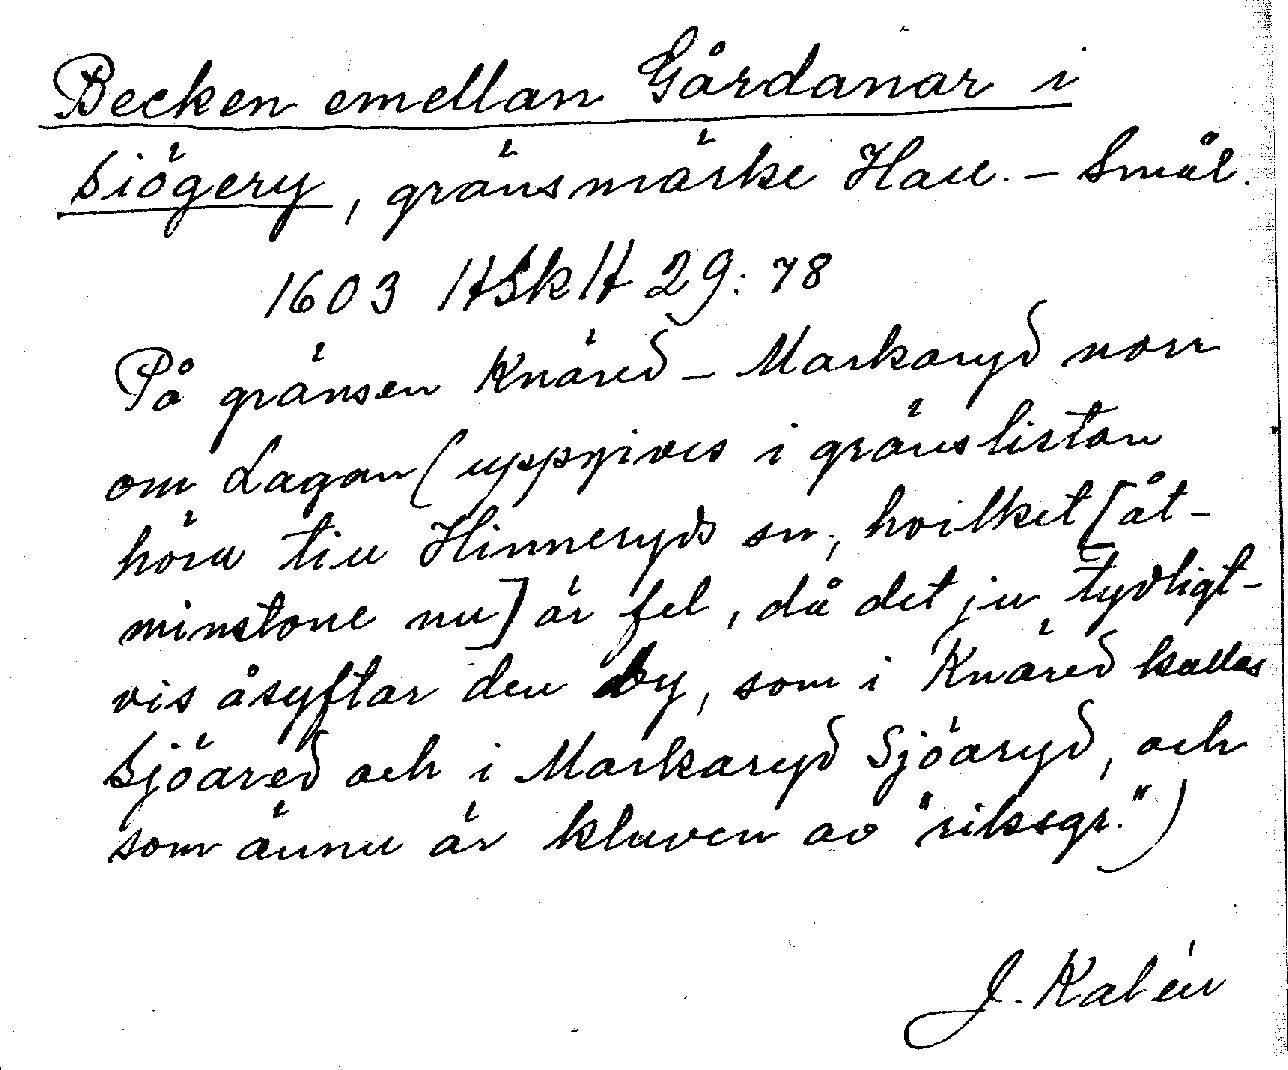 Becken emellan Gårdanar i
Siögery, gränsmärke Hall. - Smål.
1603 HSkH 29: 78
På gränsen Knäred - Markaryd norr
om Lagan (uppgives i gränslistan
höra till Hinneryds sn, hvilket [åt-
minstone nu] är fel, då det ju tydligt-
vis åsyftar den by, som i Knäred kallas
Sjöared och i Markaryd Sjöaryd, och
som ännu är kluven av "riksgr.")
J. Kalén